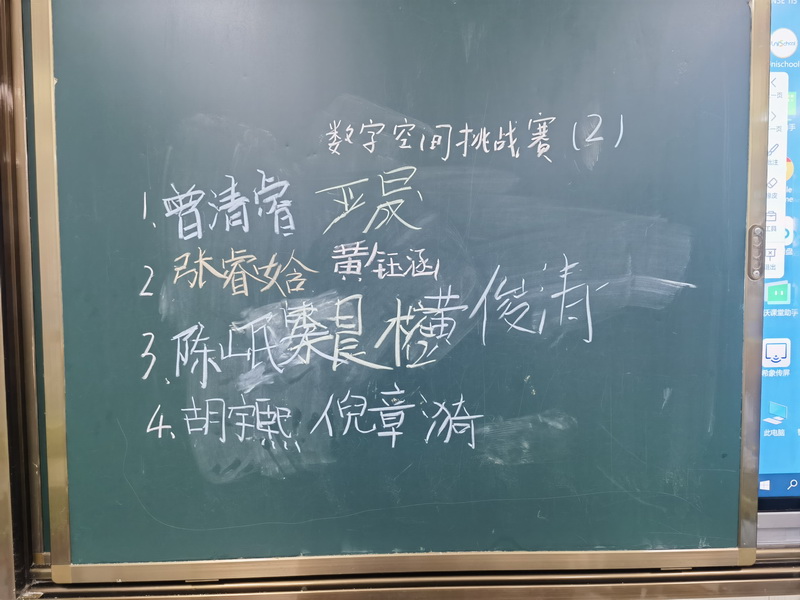 数字空间挑战赛(2)
1.曾清睿 亚晟
2 张睿晗 黄钰涵
3.陈岷 晨 黄俊清
4.胡宇熙 倪章漪
此电脑